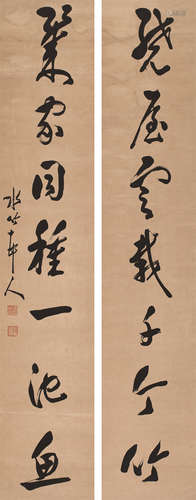 繞屋寬栽千个竹
家同種一池魚
水竹邨人